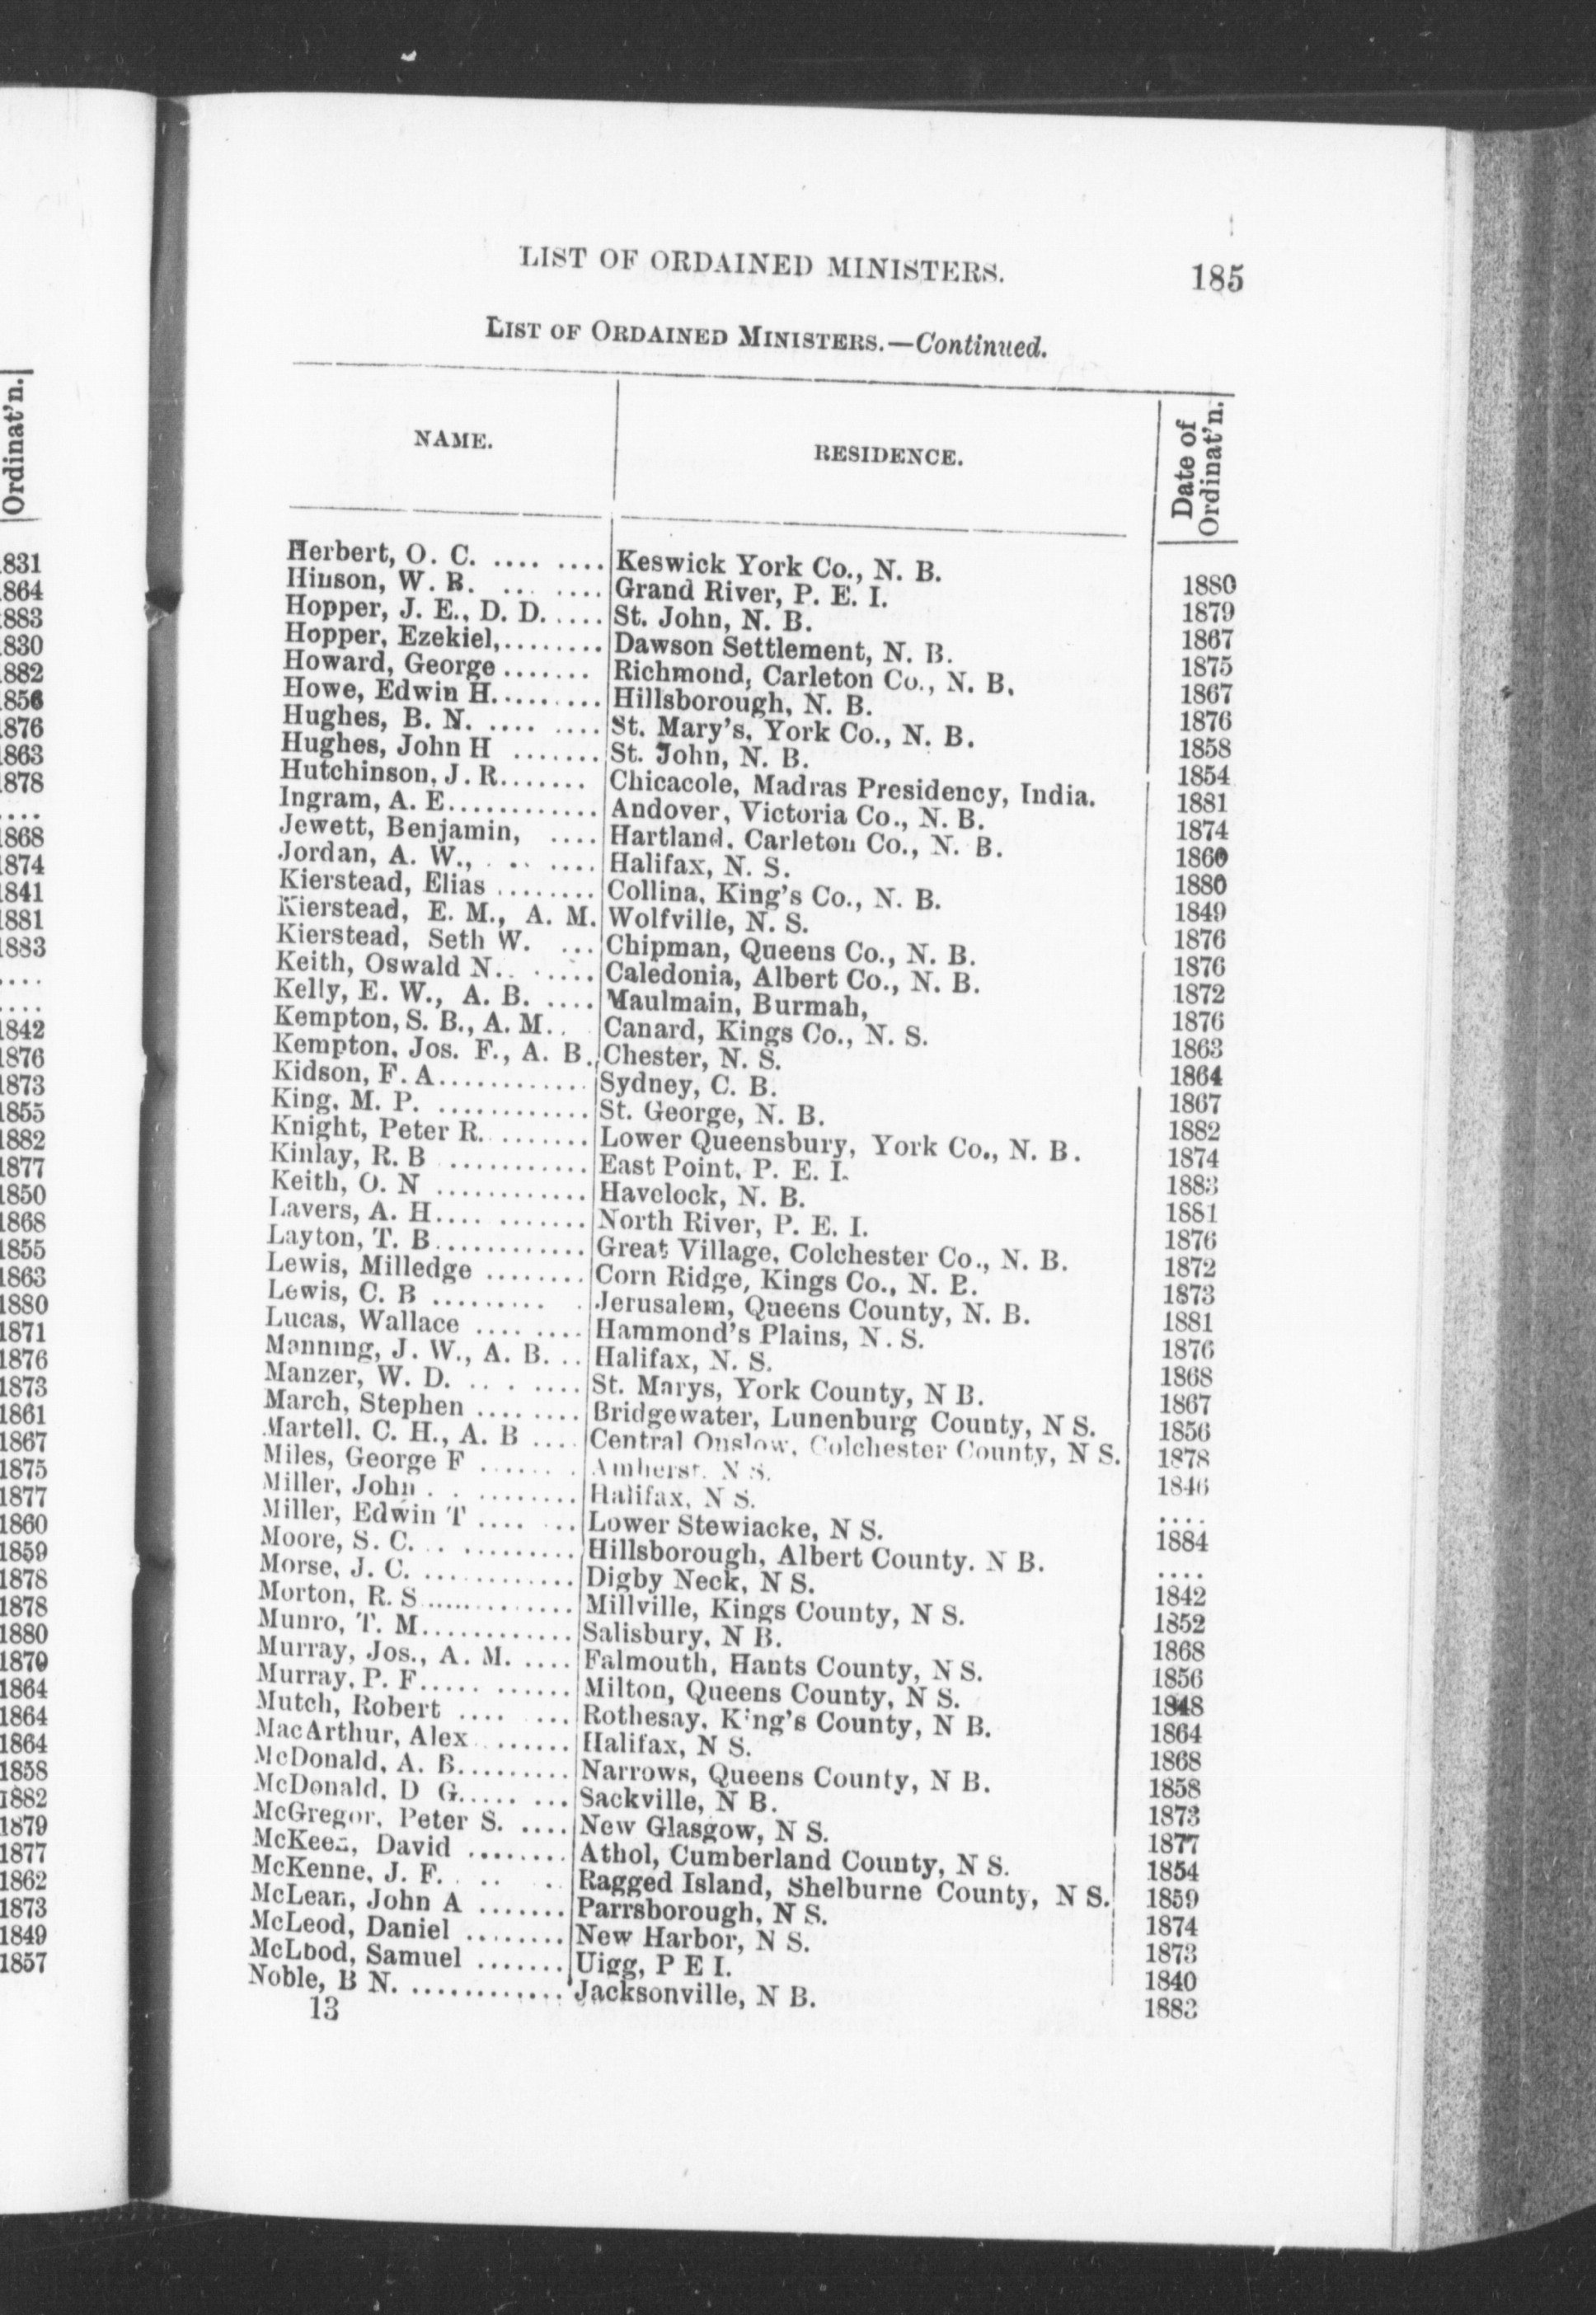 Ordinat'n.
1831
1864
1883
1830
1882
1856
1876
1863
1878
....
1868
1874
1841
1881
1883
....
....
1842
1876
1873
1855
1882
1877
1850
1868
1855
1863
1880
1871
1876
1873
1861
1867
1875
1877
1860
1859
1878
1878
1880
1870
1864
1864
1864
1858
1882
1879
1877
1862
1873
1849
1857
LIST OF ORDAINED MINISTERS. 185
LIST OF ORDAINED MINISTERS.—Continued.
NAME. RESIDENCE. Date of Ordinat'n.
Herbert, O. C. ........ Keswick York Co., N. B. 1880
Hinson, W. B. ........ Grand River, P. E. I. 1879
Hopper, J. E., D. D. ..... St. John, N. B. 1867
Hopper, Ezekiel, ........ Dawson Settlement, N. B. 1875
Howard, George ....... Richmond, Carleton Co., N. B. 1867
Howe, Edwin H. ........ Hillsborough, N. B. 1876
Hughes, B. N. ........ St. Mary's, York Co., N. B. 1858
Hughes, John H ....... St. John, N. B. 1854
Hutchinson, J. R. ...... Chicacole, Madras Presidency, India. 1881
Ingram, A. E. ........... Andover, Victoria Co., N. B. 1874
Jewett, Benjamin, .... Hartland, Carleton Co., N. B. 1860
Jordan, A. W., ....... Halifax, N. S. 1880
Kierstead, Elias ........ Collina, King's Co., N. B. 1849
Kierstead, E. M., A. M. Wolfville, N. S. 1876
Kierstead, Seth W. ... Chipman, Queens Co., N. B. 1876
Keith, Oswald N. ...... Caledonia, Albert Co., N. B. 1872
Kelly, E. W., A. B. .... Maulmain, Burmah, 1876
Kempton, S. B., A. M. . Canard, Kings Co., N. S. 1863
Kempton, Jos. F., A. B. Chester, N. S. 1864
Kidson, F. A ............ Sydney, C. B. 1867
King, M. P. ............ St. George, N. B. 1882
Knight, Peter R. ........ Lower Queensbury, York Co., N. B. 1874
Kinlay, R. B ........... East Point, P. E. I. 1883
Keith, O. N ............ Havelock, N. B. 1881
Lavers, A. H. .......... North River, P. E. I. 1876
Layton, T. B. ........... Great Village, Colchester Co., N. B. 1872
Lewis, Milledge ........ Corn Ridge, Kings Co., N. B. 1873
Lewis, C. B .......... Jerusalem, Queens County, N. B. 1881
Lucas, Wallace ........ Hammond's Plains, N. S. 1876
Manning, J. W., A. B. ... Halifax, N. S. 1868
Manzer, W. D. ........ St. Marys, York County, N B. 1867
March, Stephen ........ Bridgewater, Lunenburg County, N S. 1856
Martell, C. H., A. B .... Central Onslow, Colchester County, N S. 1878
Miles, George F ....... Amherst, N S. 1846
Miller, John .......... Halifax, N S. ....
Miller, Edwin T ...... Lower Stewiacke, N S. 1884
Moore, S. C. .......... Hillsborough, Albert County. N B. ....
Morse, J. C. ............ Digby Neck, N S. 1842
Morton, R. S ............ Millville, Kings County, N S. 1852
Munro, T. M. ........... Salisbury, N B. 1868
Murray, Jos., A. M. .... Falmouth, Hants County, N S. 1856
Murray, P. F. .......... Milton, Queens County, N S. 1848
Mutch, Robert ....... Rothesay, King's County, N B. 1864
MacArthur, Alex ....... Halifax, N S. 1868
McDonald, A. B. ........ Narrows, Queens County, N B. 1858
McDonald, D G. ....... Sackville, N B. 1873
McGregor, Peter S. .... New Glasgow, N S. 1877
McKeen, David ........ Athol, Cumberland County, N S. 1854
McKenne, J. F. ..... Ragged Island, Shelburne County, N S. 1859
McLean, John A ....... Parrsborough, N S. 1874
McLeod, Daniel ........ New Harbor, N S. 1873
McLood, Samuel ....... Uigg, P E I. 1840
Noble, B N. ............ Jacksonville, N B. 1883
13